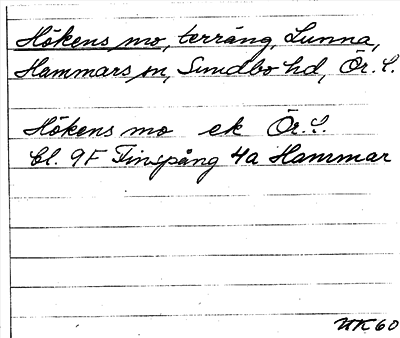 Hökens mo, terräng, Lunna,
Hammars sn, Sundbo hd, Ör. L.
Hökens mo ek Ör. L.
bl. 9F Finspång 4a Hammar
NK 60